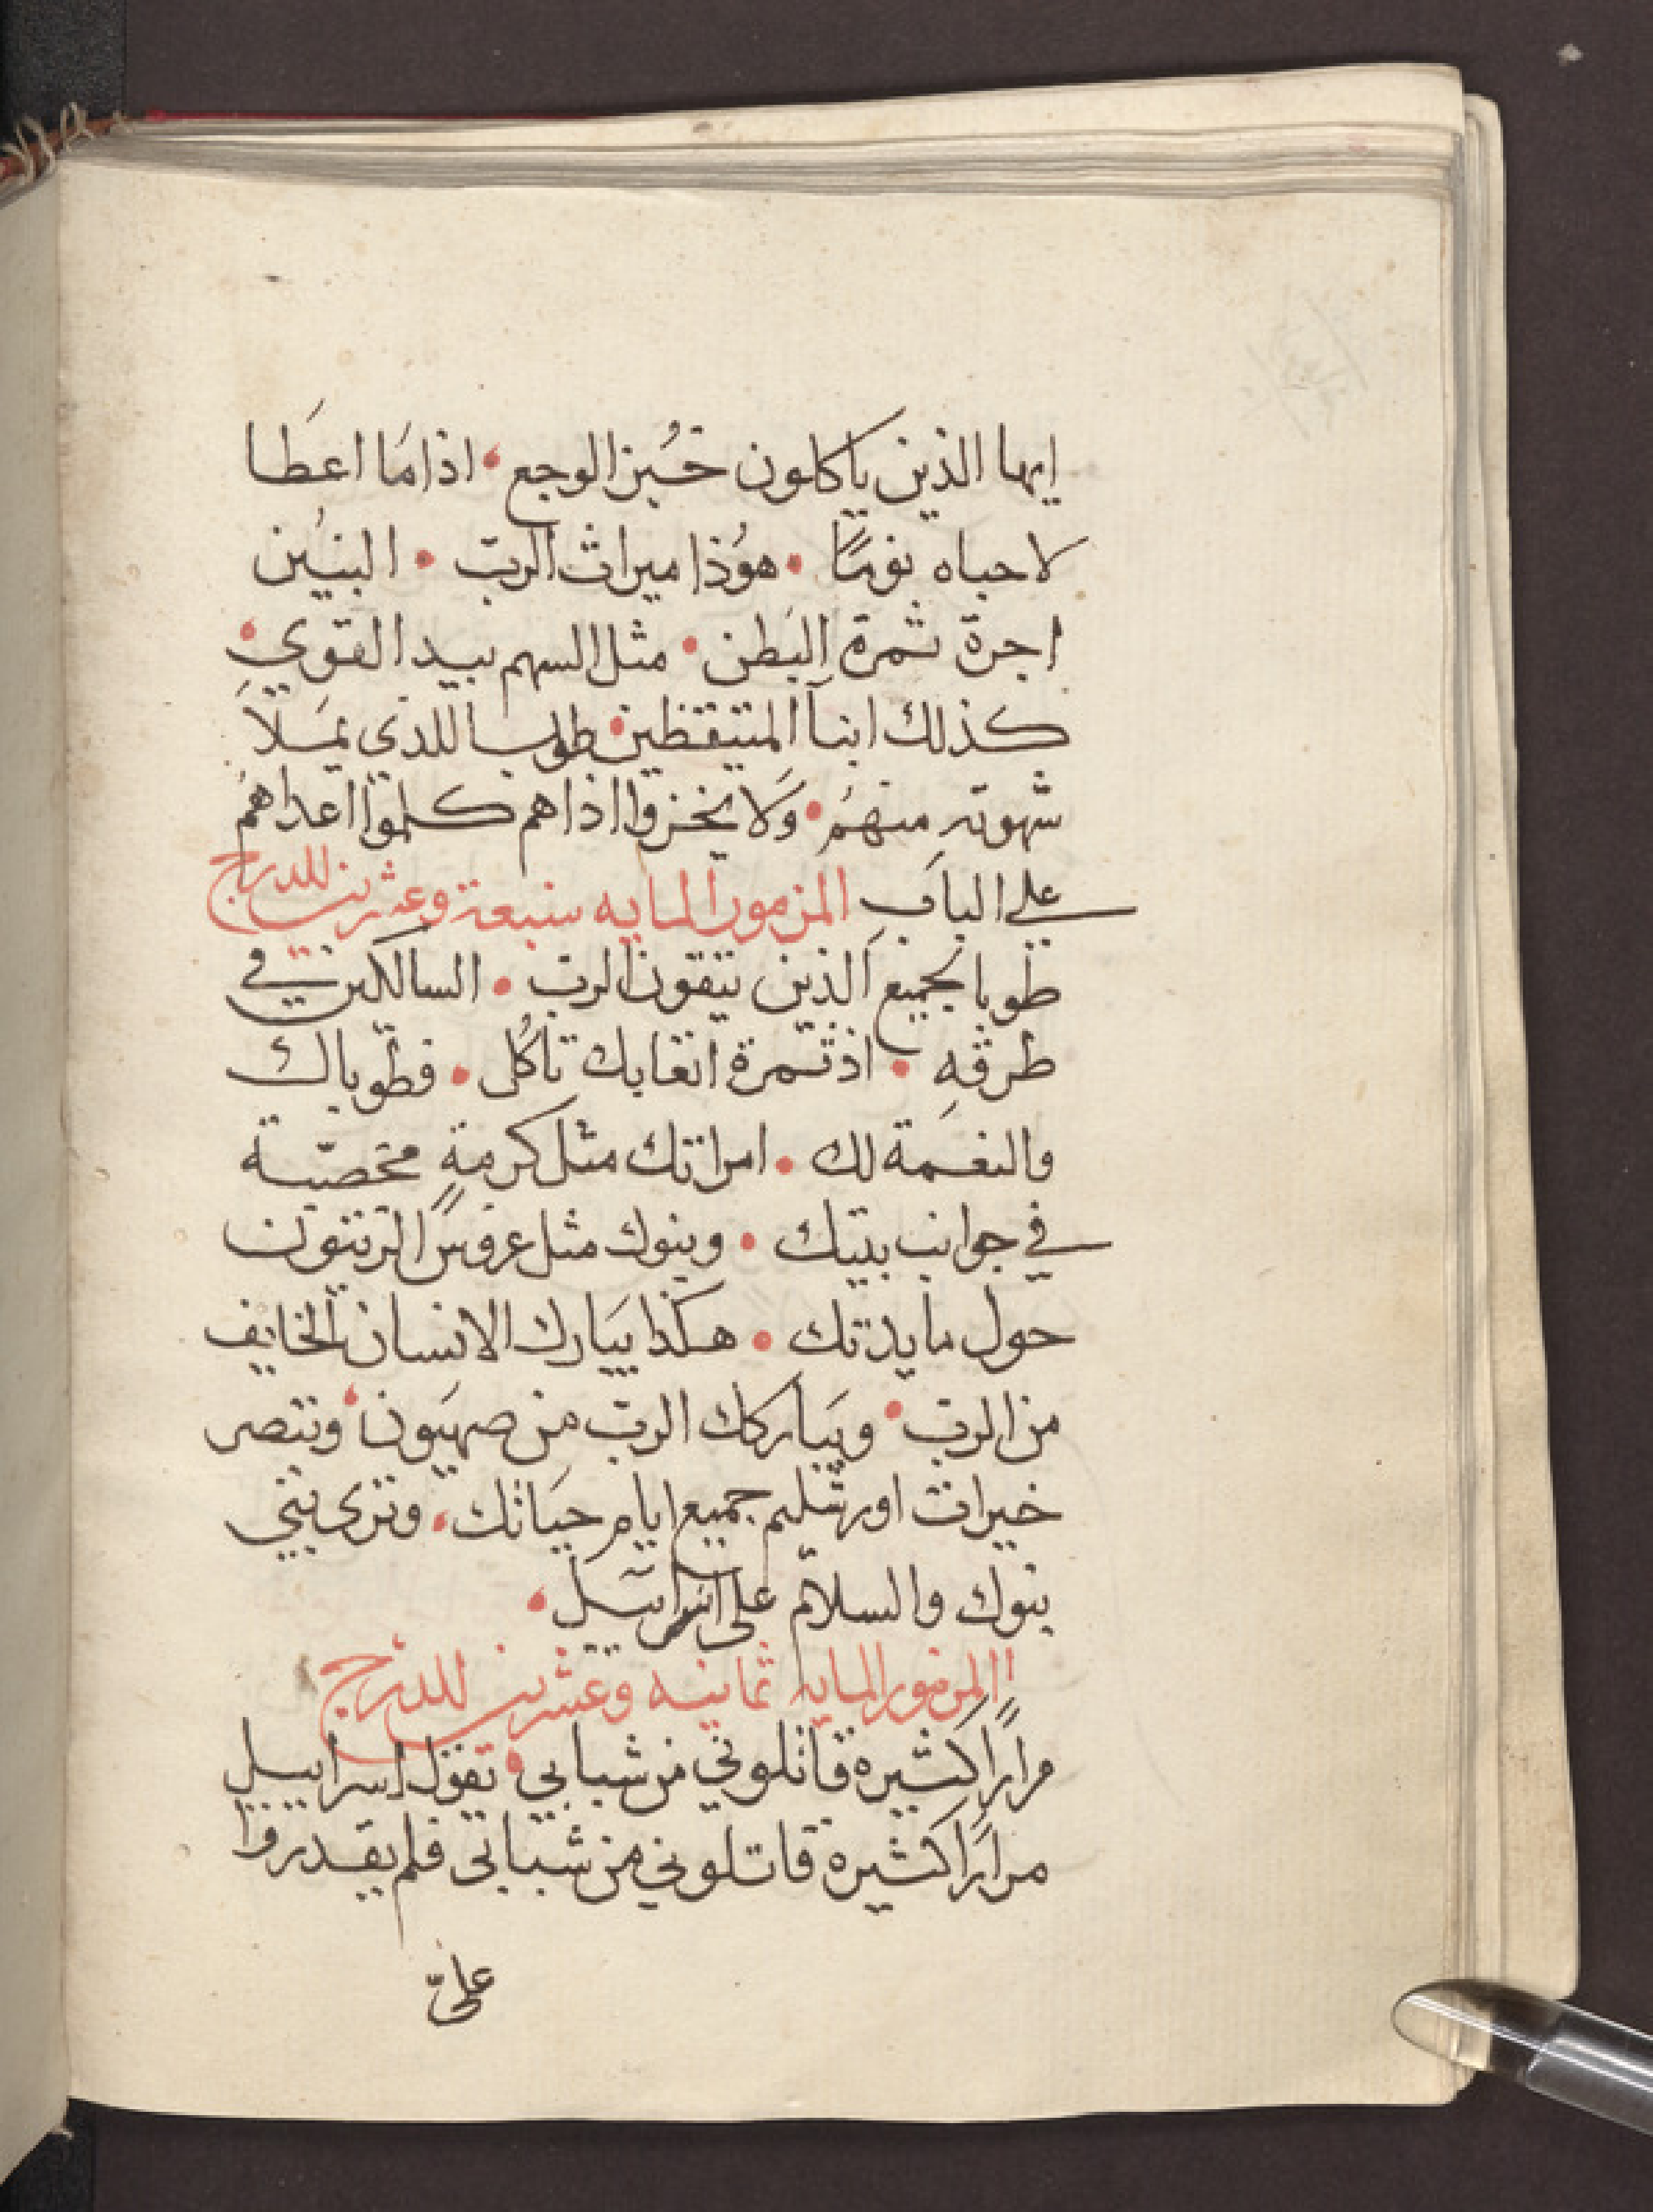 ايها الذين ياكلون خُبز الوجع • اذا مَا اعطَا
لاحباه نومًا • هوُذا ميراث الربّ • البنيُن
اجرة ثمرة البَطن • مثل السهم بيد القوي •
كذلك ابنآ المتيقظين • طوبا للذي يمَلاَ
شهوته منهمُ • وَلا يخزوا اذا هم كلموا اعداهمُ
علي الباَب المزمور المايه سبعة وعشرين للدرج
طوبا لجميع الذين يتقون الربّ • السالكين في
طرقهِ • اذ ثمرة اتعابك تاكُل • فطوباك
والنعمة لك • امراتك مثل كرمةٍ مخصبة
في جوانب بيتك • وبنوك مثل غروسً الزيتون
حول مايدتك • هكذا يبَارك الانسان الخايف
من الربّ • ويبَاركك الربّ من صهيَون • وتنصر
خيرات اورشليم جميع ايام حيَاتك • وترى بني
بنوك والسلام على اسراييل •
المزمور المايه ثمانيه وعشرين للدرج
مرارًا كثيره قاتلوني من شبابي • تقول اسراييل
مرارًا كثيره قاتلوني من شبابى فلم يقدروا
علىّ